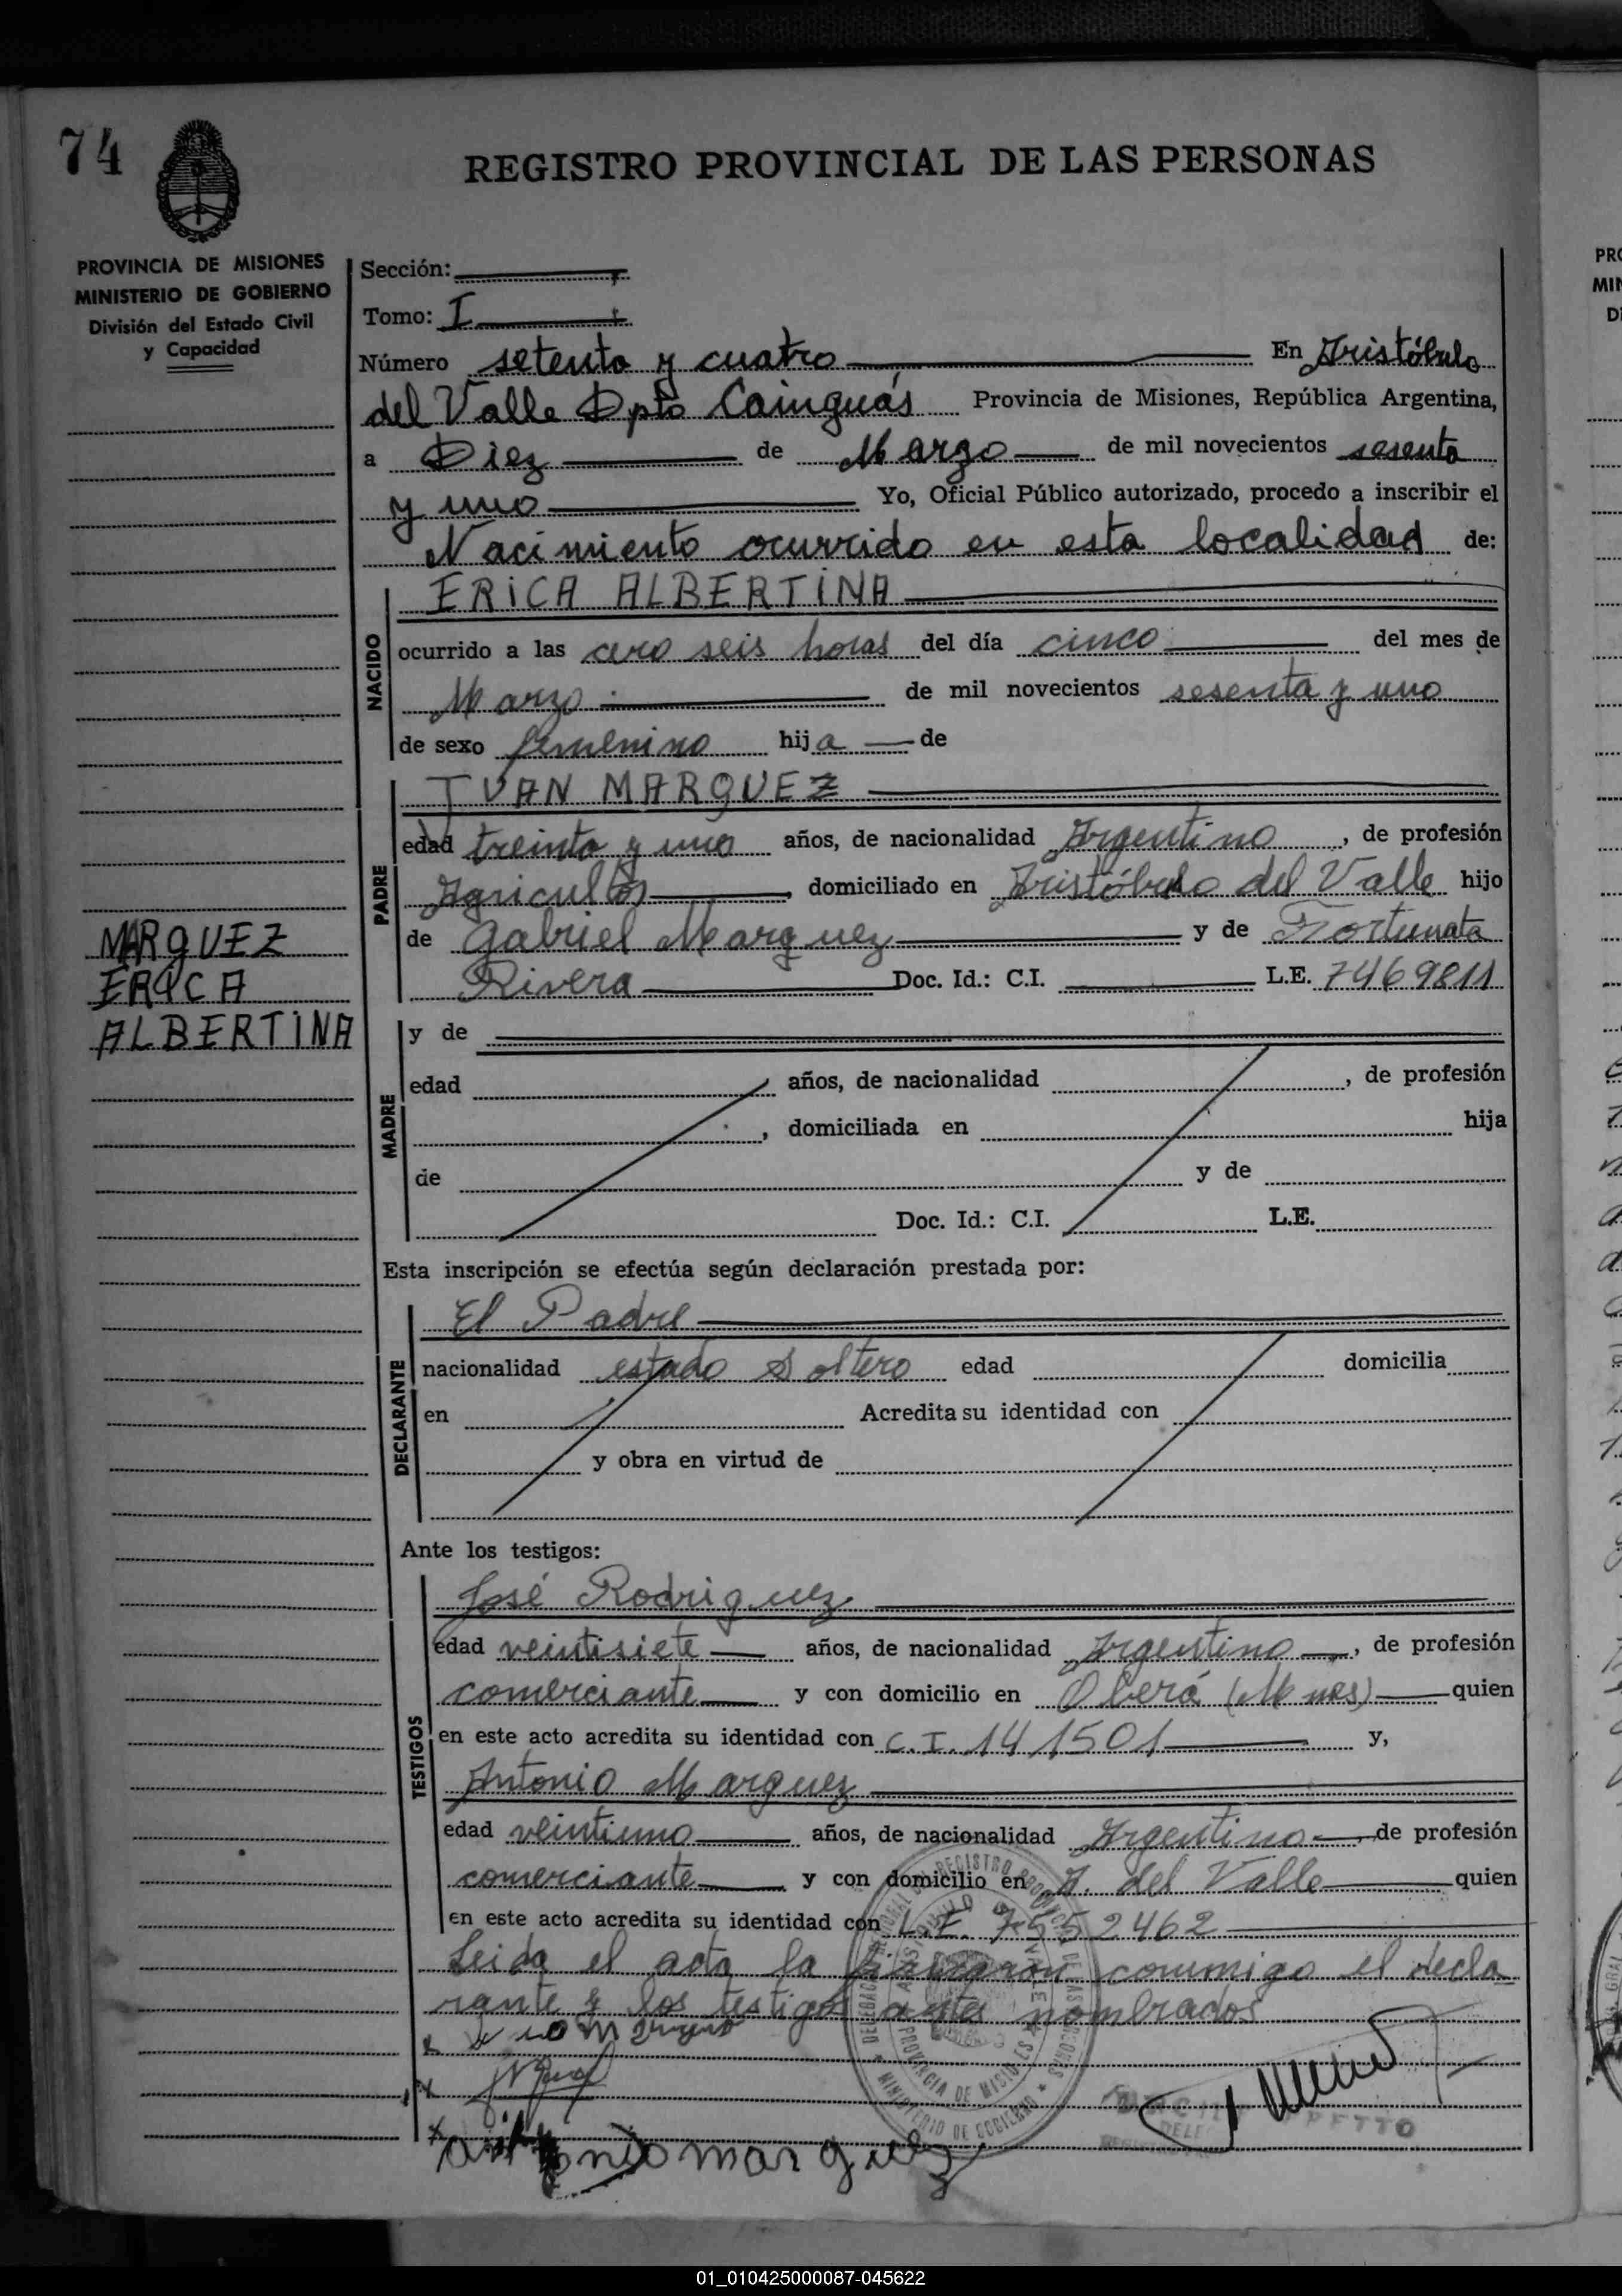 74
REGISTRO PROVINCIAL DE LAS PERSONAS
PROVINCIA DE MISIONES
MINISTERIO DE GOBIERNO
División del Estado Civil
y Capacidad
Sección:
Tomo: I
Número setenta y cuatro En Aristóbulo
del Valle Dpto Cainguás Provincia de Misiones, República Argentina,
a Diez de Marzo de mil novecientos sesenta
y uno Yo, Oficial Público autorizado, procedo a inscribir el
Nacimiento ocurrido en esta localidad de:
NACIDO
ERICA ALBERTINA
ocurrido a las cero seis horas del día cinco del mes de
Marzo de mil novecientos sesenta y uno
de sexo femenino hija de
PADRE
IVAN MARQUEZ
edad treinta y uno años, de nacionalidad Argentino, de profesión
Agricultor, domiciliado en Aristóbulo del Valle hijo
de Gabriel Marquez y de Fortunata
Rivera Doc. Id.: C.I. L.E. 7469811
MARQUEZ
ERICA
ALBERTINA
MADRE
y de
edad años, de nacionalidad , de profesión
, domiciliada en hija
de y de
Doc. Id.: C.I. L.E.
Esta inscripción se efectúa según declaración prestada por:
DECLARANTE
El Padre
nacionalidad estado Soltero edad domicilia
en Acredita su identidad con
y obra en virtud de
Ante los testigos:
TESTIGOS
José Rodriguez
edad veintisiete años, de nacionalidad Argentino, de profesión
comerciante y con domicilio en Oberá (Mnes) quien
en este acto acredita su identidad con C.I. 141501 y,
Antonio Marquez
edad veintiuno años, de nacionalidad Argentino, de profesión
comerciante y con domicilio en A. del Valle quien
en este acto acredita su identidad con L.E. 7552462
Leida el acta la firmaron conmigo el decla
rante y los testigos antes nombrados
antonio marquez
PROVINCIA DE MISIONES
MINISTERIO DE GOBIERNO
01_010425000087-045622